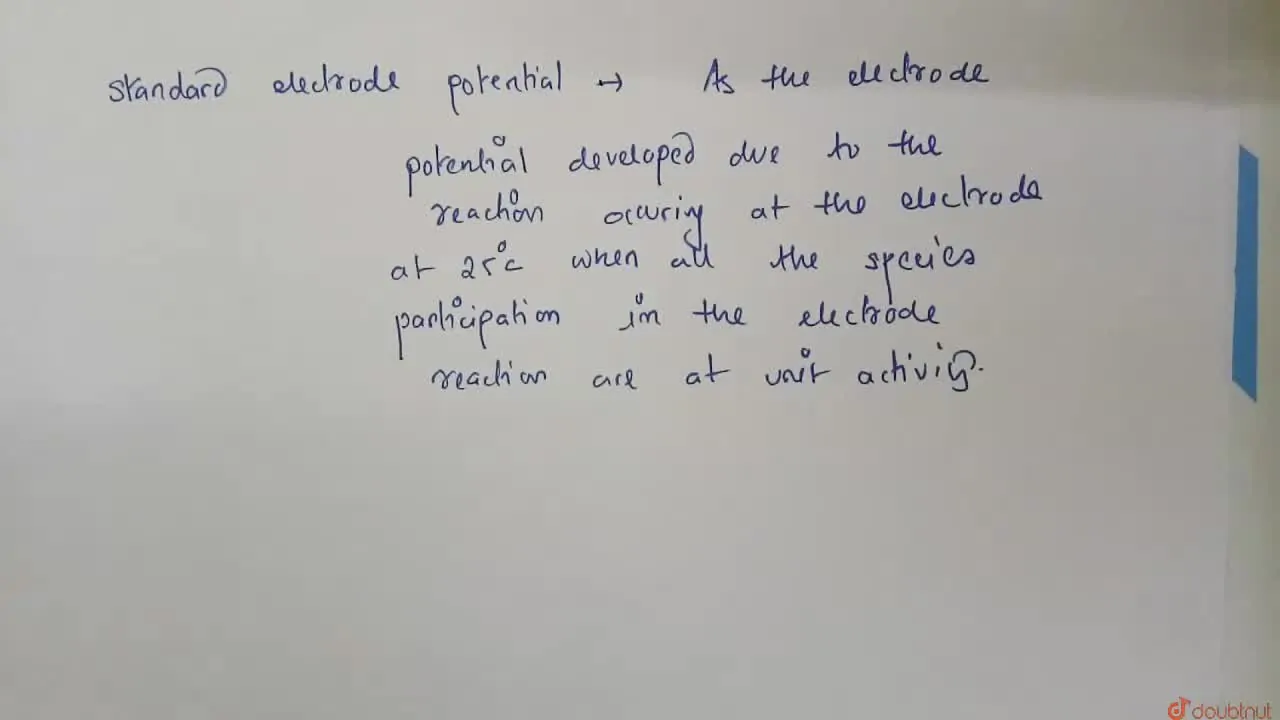 standard electrode potential → As the electrode
potential developed due to the
reaction occuring at the electrode
at 25°C when all the species
participation in the electrode
reaction are at unit activity.
doubtnut